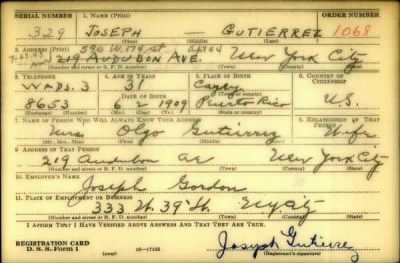 SERIAL NUMBER 1. NAME (Print) ORDER NUMBER
329 JOSEPH — GUTIERREZ 1068
(First) (Middle) (Last)
590 W. 174 st.
2. ADDRESS (Print)
219 AUDUBON AVE. New York City
(Number and street or R. F. D. number) (Town) (County) (State)
3. TELEPHONE 4. AGE IN YEARS 5. PLACE OF BIRTH 6. COUNTRY OF CITIZENSHIP
WADS. 3 31 Cayey
DATE OF BIRTH
8653 6 2 1909 Puerto Rico U.S.
(Exchange) (Number) (Mo.) (Day) (Yr.) (Town or county) (State or country)
7. NAME OF PERSON WHO WILL ALWAYS KNOW YOUR ADDRESS 8. RELATIONSHIP OF THAT PERSON
Mrs Olgo Gutierrez Wife
(Mr., Mrs., Miss) (First) (Middle) (Last)
9. ADDRESS OF THAT PERSON
219 Audubon av New York City
(Number and street or R. F. D. number) (Town) (County) (State)
10. EMPLOYER'S NAME
Joseph Gordon
11. PLACE OF EMPLOYMENT OR BUSINESS
333 W. 39 St. NYCity
(Number and street or R. F. D. number) (Town) (County) (State)
I AFFIRM THAT I HAVE VERIFIED ABOVE ANSWERS AND THAT THEY ARE TRUE.
REGISTRATION CARD
D. S. S. Form 1 (over) 16—17105 Joseph Gutierrez
(Registrant's signature)